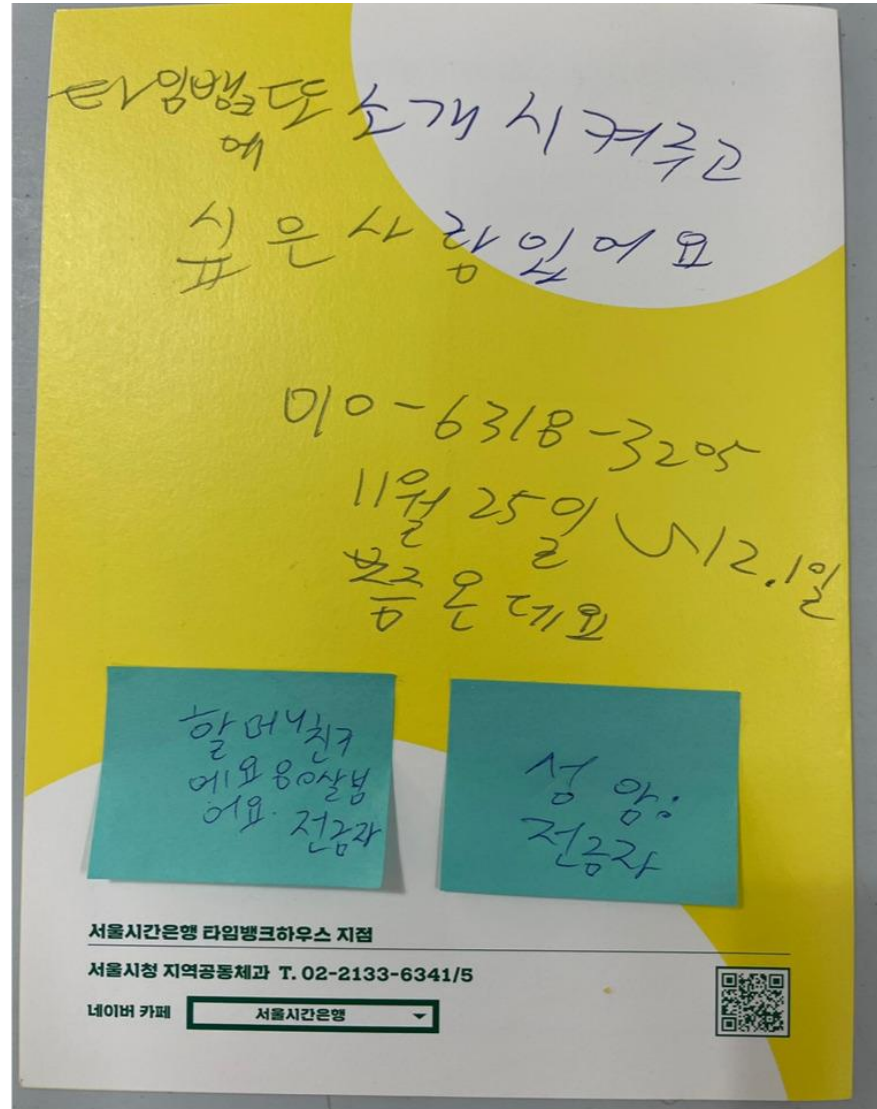 타임뱅크또
에
소개 시켜주고
싶은사람있어요
010-6318-3205
11월 25일 ~12.1일
쯤 온데요
할머니친구
에요 80살넘
어요. 전금자
성암:
전금자
서울시간은행 타임뱅크하우스 지점
서울시청 지역공동체과 T. 02-2133-6341/5
네이버 카페 서울시간은행